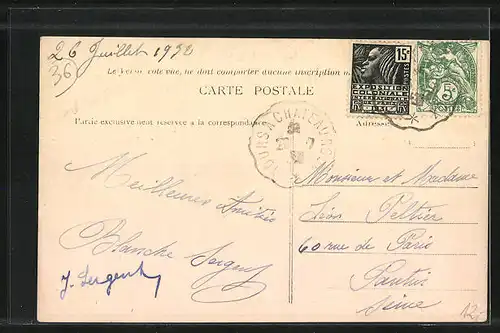 26 Juillet 1932
(36)
Le verso ne doit comporter aucune inscription
CARTE POSTALE
Partie exclusivement réservée à la correspondance
Adresse
15c
EXPOSITION
COLONIALE
INTERNATIONALE
PARIS 1931
5c
POSTES
TOURS A CHATEAUROUX
Meilleures Amitiés
Blanche Sergent
J. Sergent
Monsieur et Madame
Léon Peltier
60 rue de Paris
Pantin
Seine
12.-